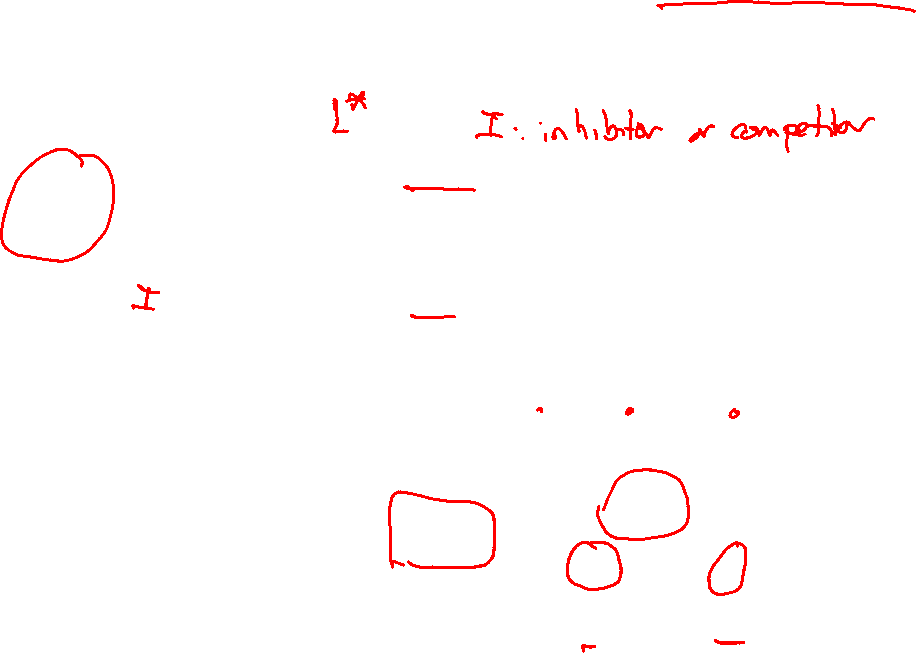 L*
I: inhibitor or competitor
I